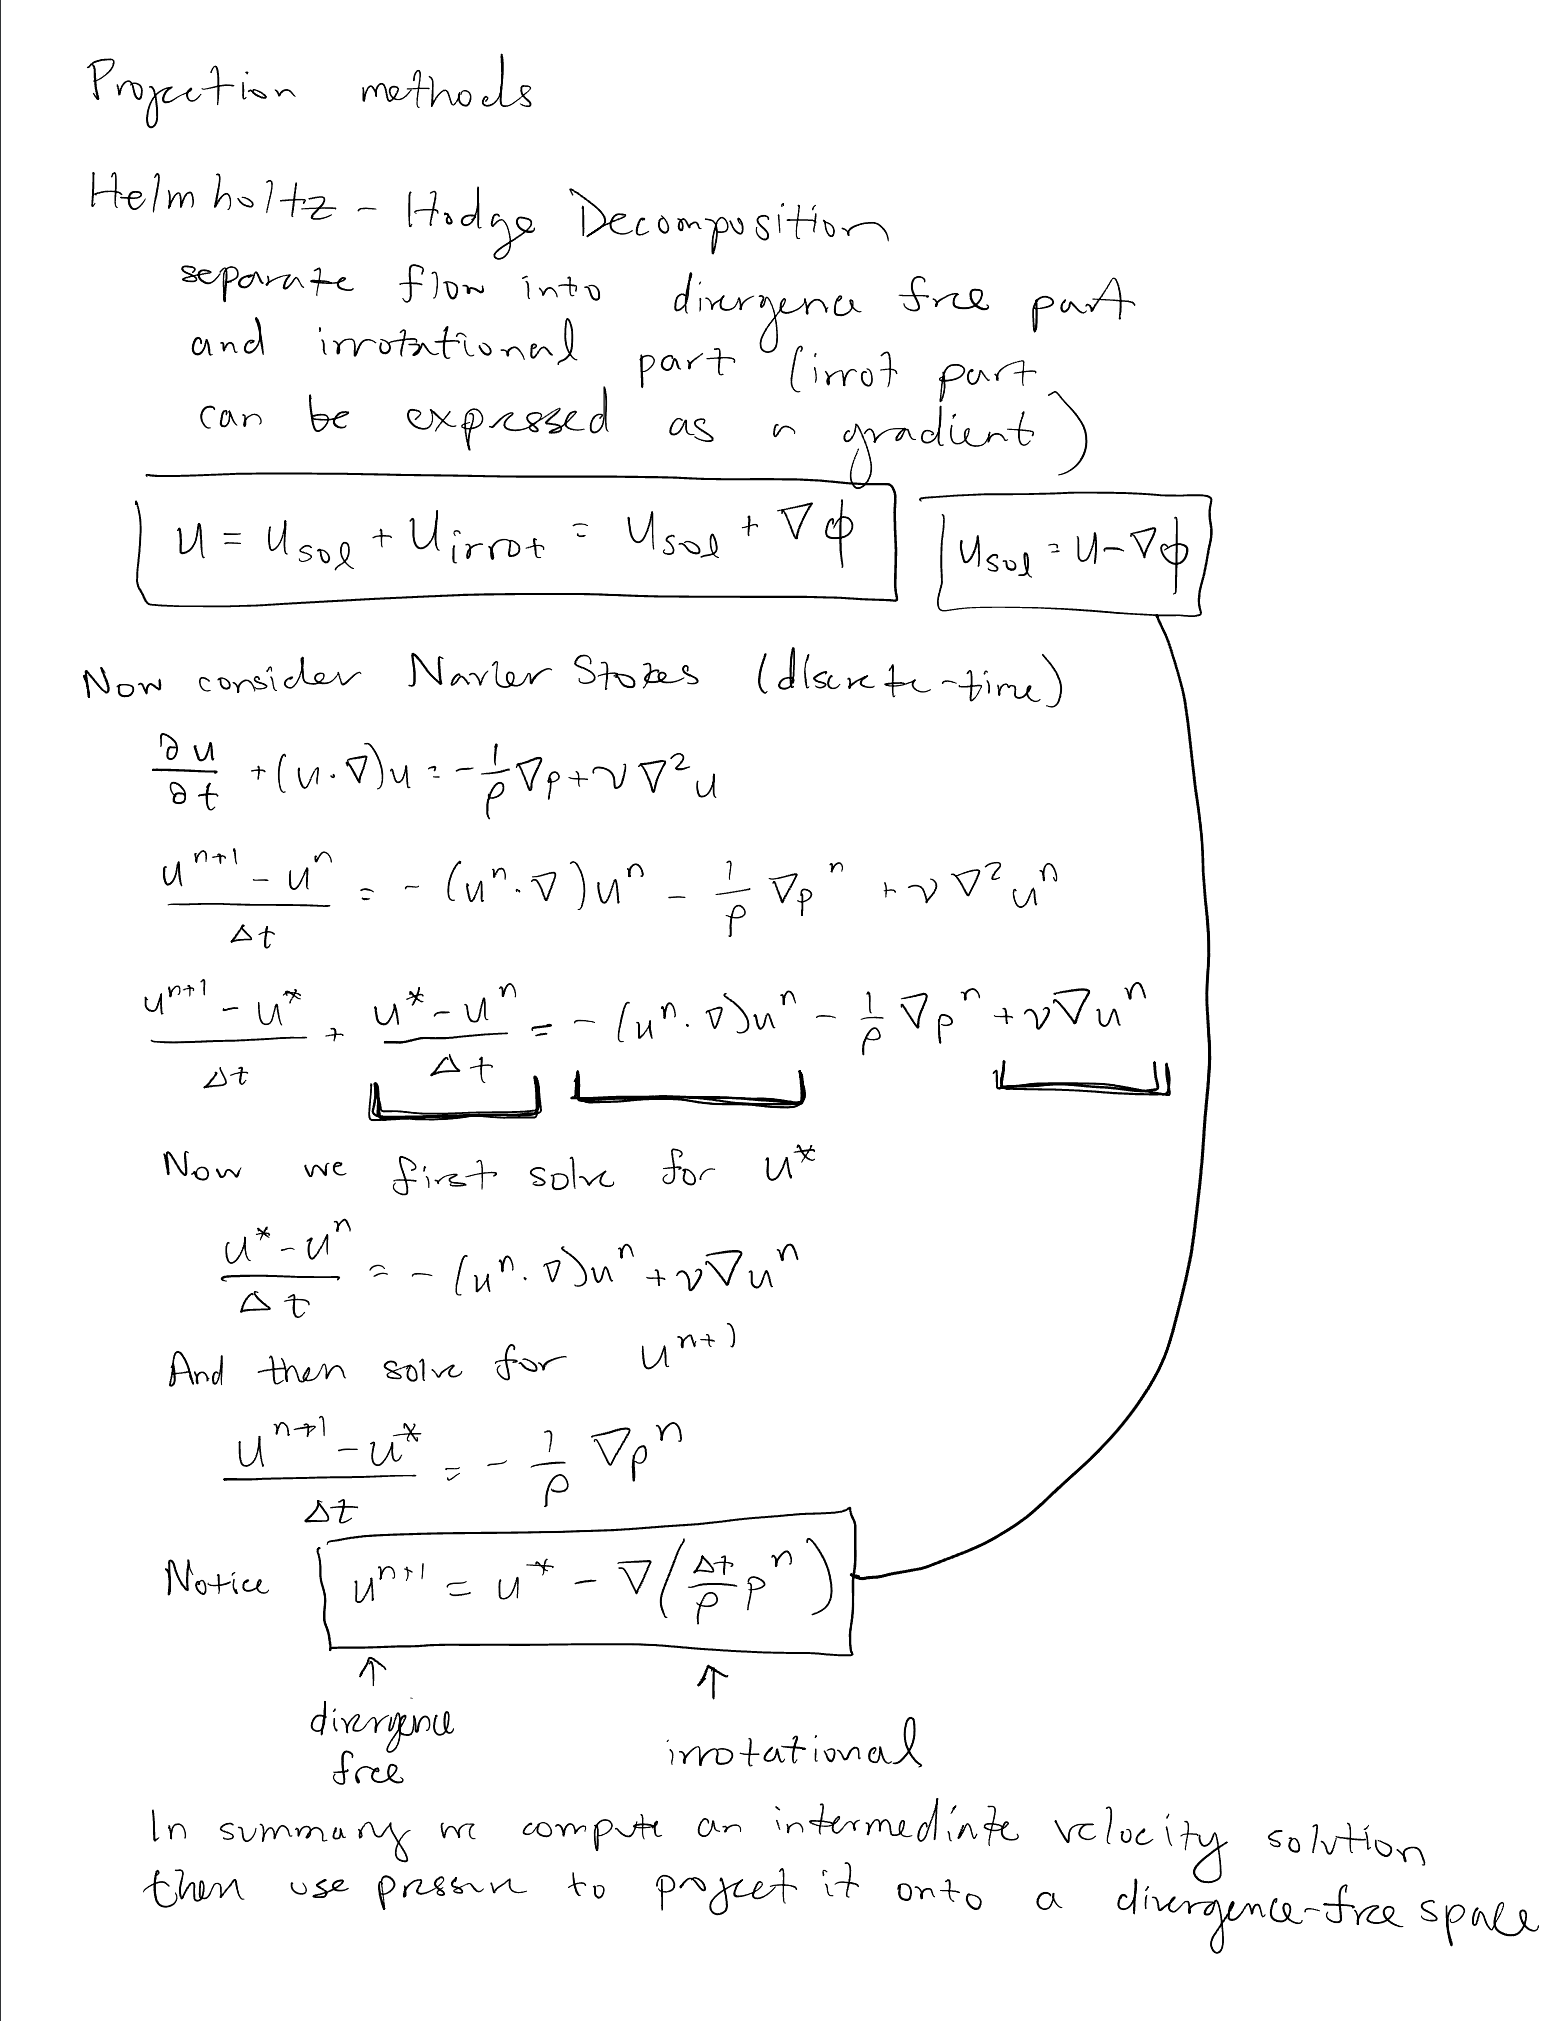 Projection methods
Helmholtz - Hodge Decomposition
separate flow into divergence free part
and irrotational part (irrot part
can be expressed as a gradient)
u = u_sol + u_irrot = u_sol + ∇ϕ
u_sol = u - ∇ϕ
Now consider Navier Stokes (discrete-time)
∂u/∂t + (u·∇)u = -1/ρ ∇p + ν∇²u
(u^{n+1} - u^n)/Δt = -(u^n·∇)u^n - 1/ρ ∇p^n + ν∇²u^n
(u^{n+1} - u^*)/Δt + (u^* - u^n)/Δt = -(u^n·∇)u^n - 1/ρ ∇p^n + ν∇u^n
Now we first solve for u^*
(u^* - u^n)/Δt = -(u^n·∇)u^n + ν∇u^n
And then solve for u^{n+1}
(u^{n+1} - u^*)/Δt = -1/ρ ∇p^n
Notice u^{n+1} = u^* - ∇(Δt/ρ p^n)
↑ ↑
divergence
free
irrotational
In summary we compute an intermediate velocity solution
then use pressure to project it onto a divergence-free space